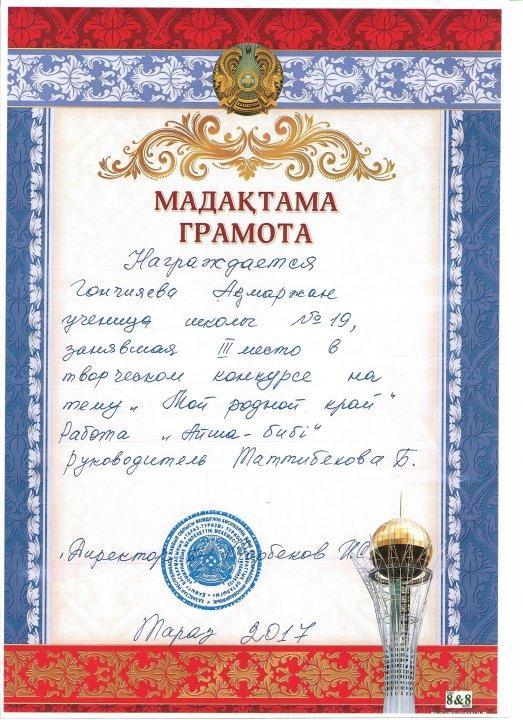 МАДАҚТАМА
ГРАМОТА
Награждается
Гончияева Ақмаржан
ученица школы №19,
занявшая III место в
творческом конкурсе на
тему „Мой родной край"
Работа „Айша-бибі"
Руководитель Таттибекова Б.
Директор
Тараз 2017
8&8